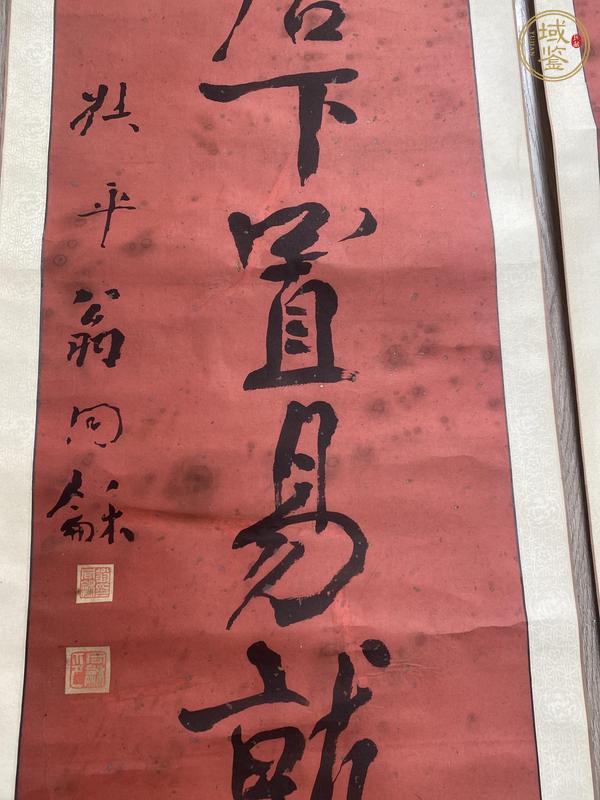 下置易就
叔平翁同龢
域鉴